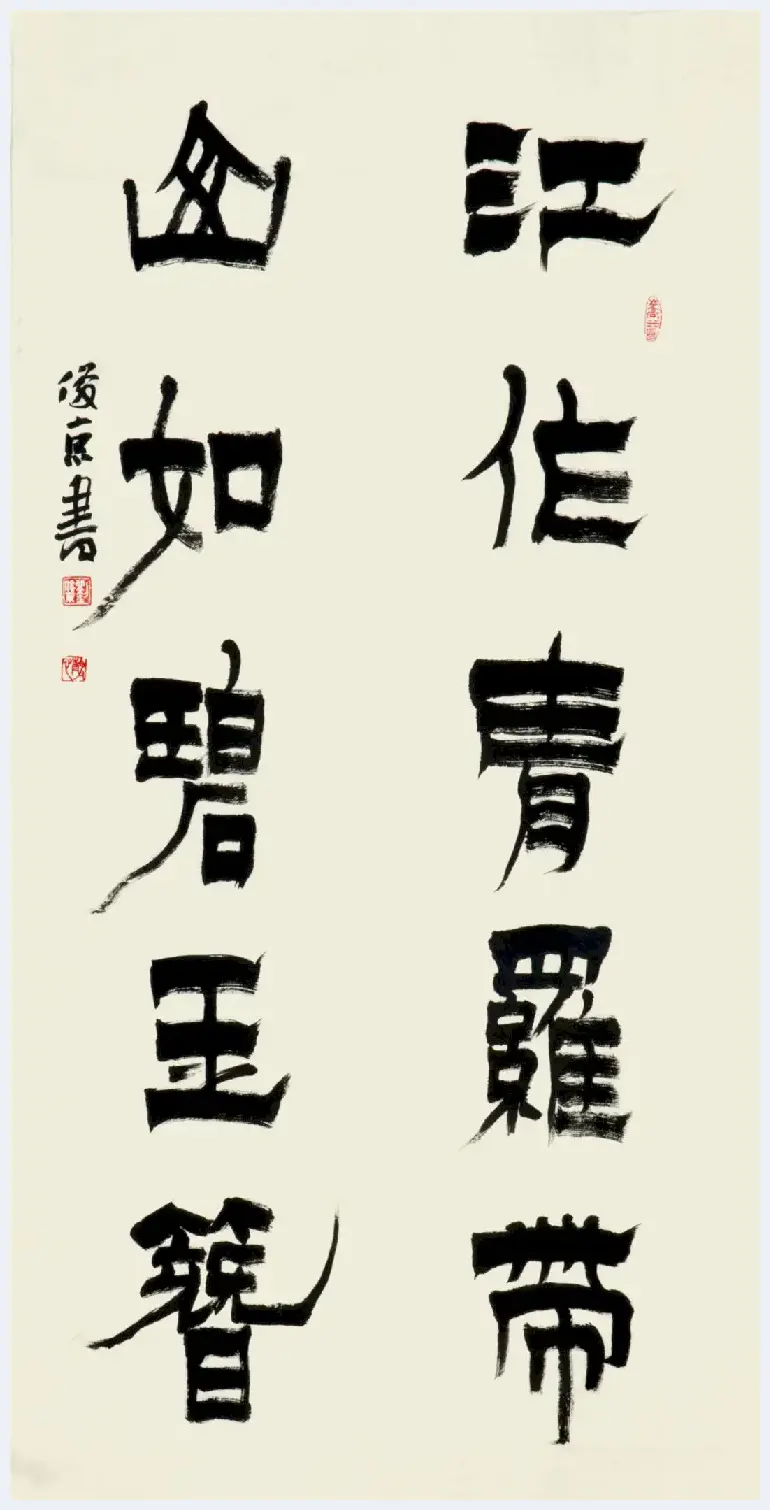 江作青羅帶
山如碧玉簪
俊京書